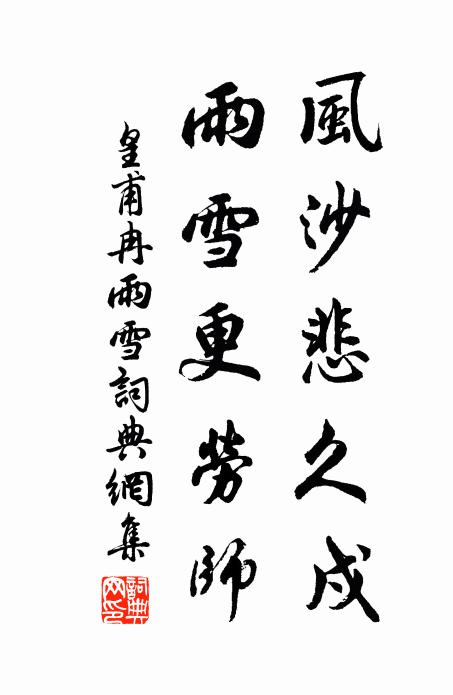 風沙悲久戍
雨雪更勞師
皇甫冉雨雪詞典網集
詞典網印